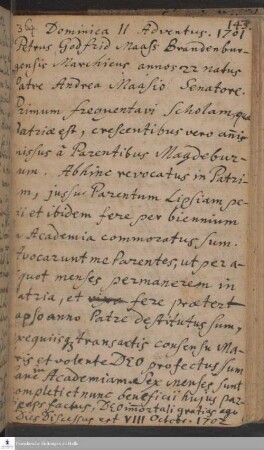 364 Dominica II Adventus. 1701
Petrus Godfrid Maass Brandenbur-
gensis Marchicus annos 22 natus
Patre Andrea Maasio Senatore.
Primum frequentavi Scholam, quæ
Patriæ est, crescentibus vero añis
missus à Parentibus Magdebur-
um. Abhinc revocatus in Patri-
m, jussu Parentum Lipsiam pe-
ii et ibidem fere per biennium
Academia commoratus sum.
vocarunt me Parentes, ut per a
quot menses permanerem in
atria, et fere præter
apso anno Patre destitutus sum,
exequiisq; transactis consensu Ma-
ris et volente DEO profectus sum
Academiam. Sex menses sunt
completi et nunc beneficii hujus
factus, DEO immortali gratias ago
Dies Discessus est VIII Octobr. 1702